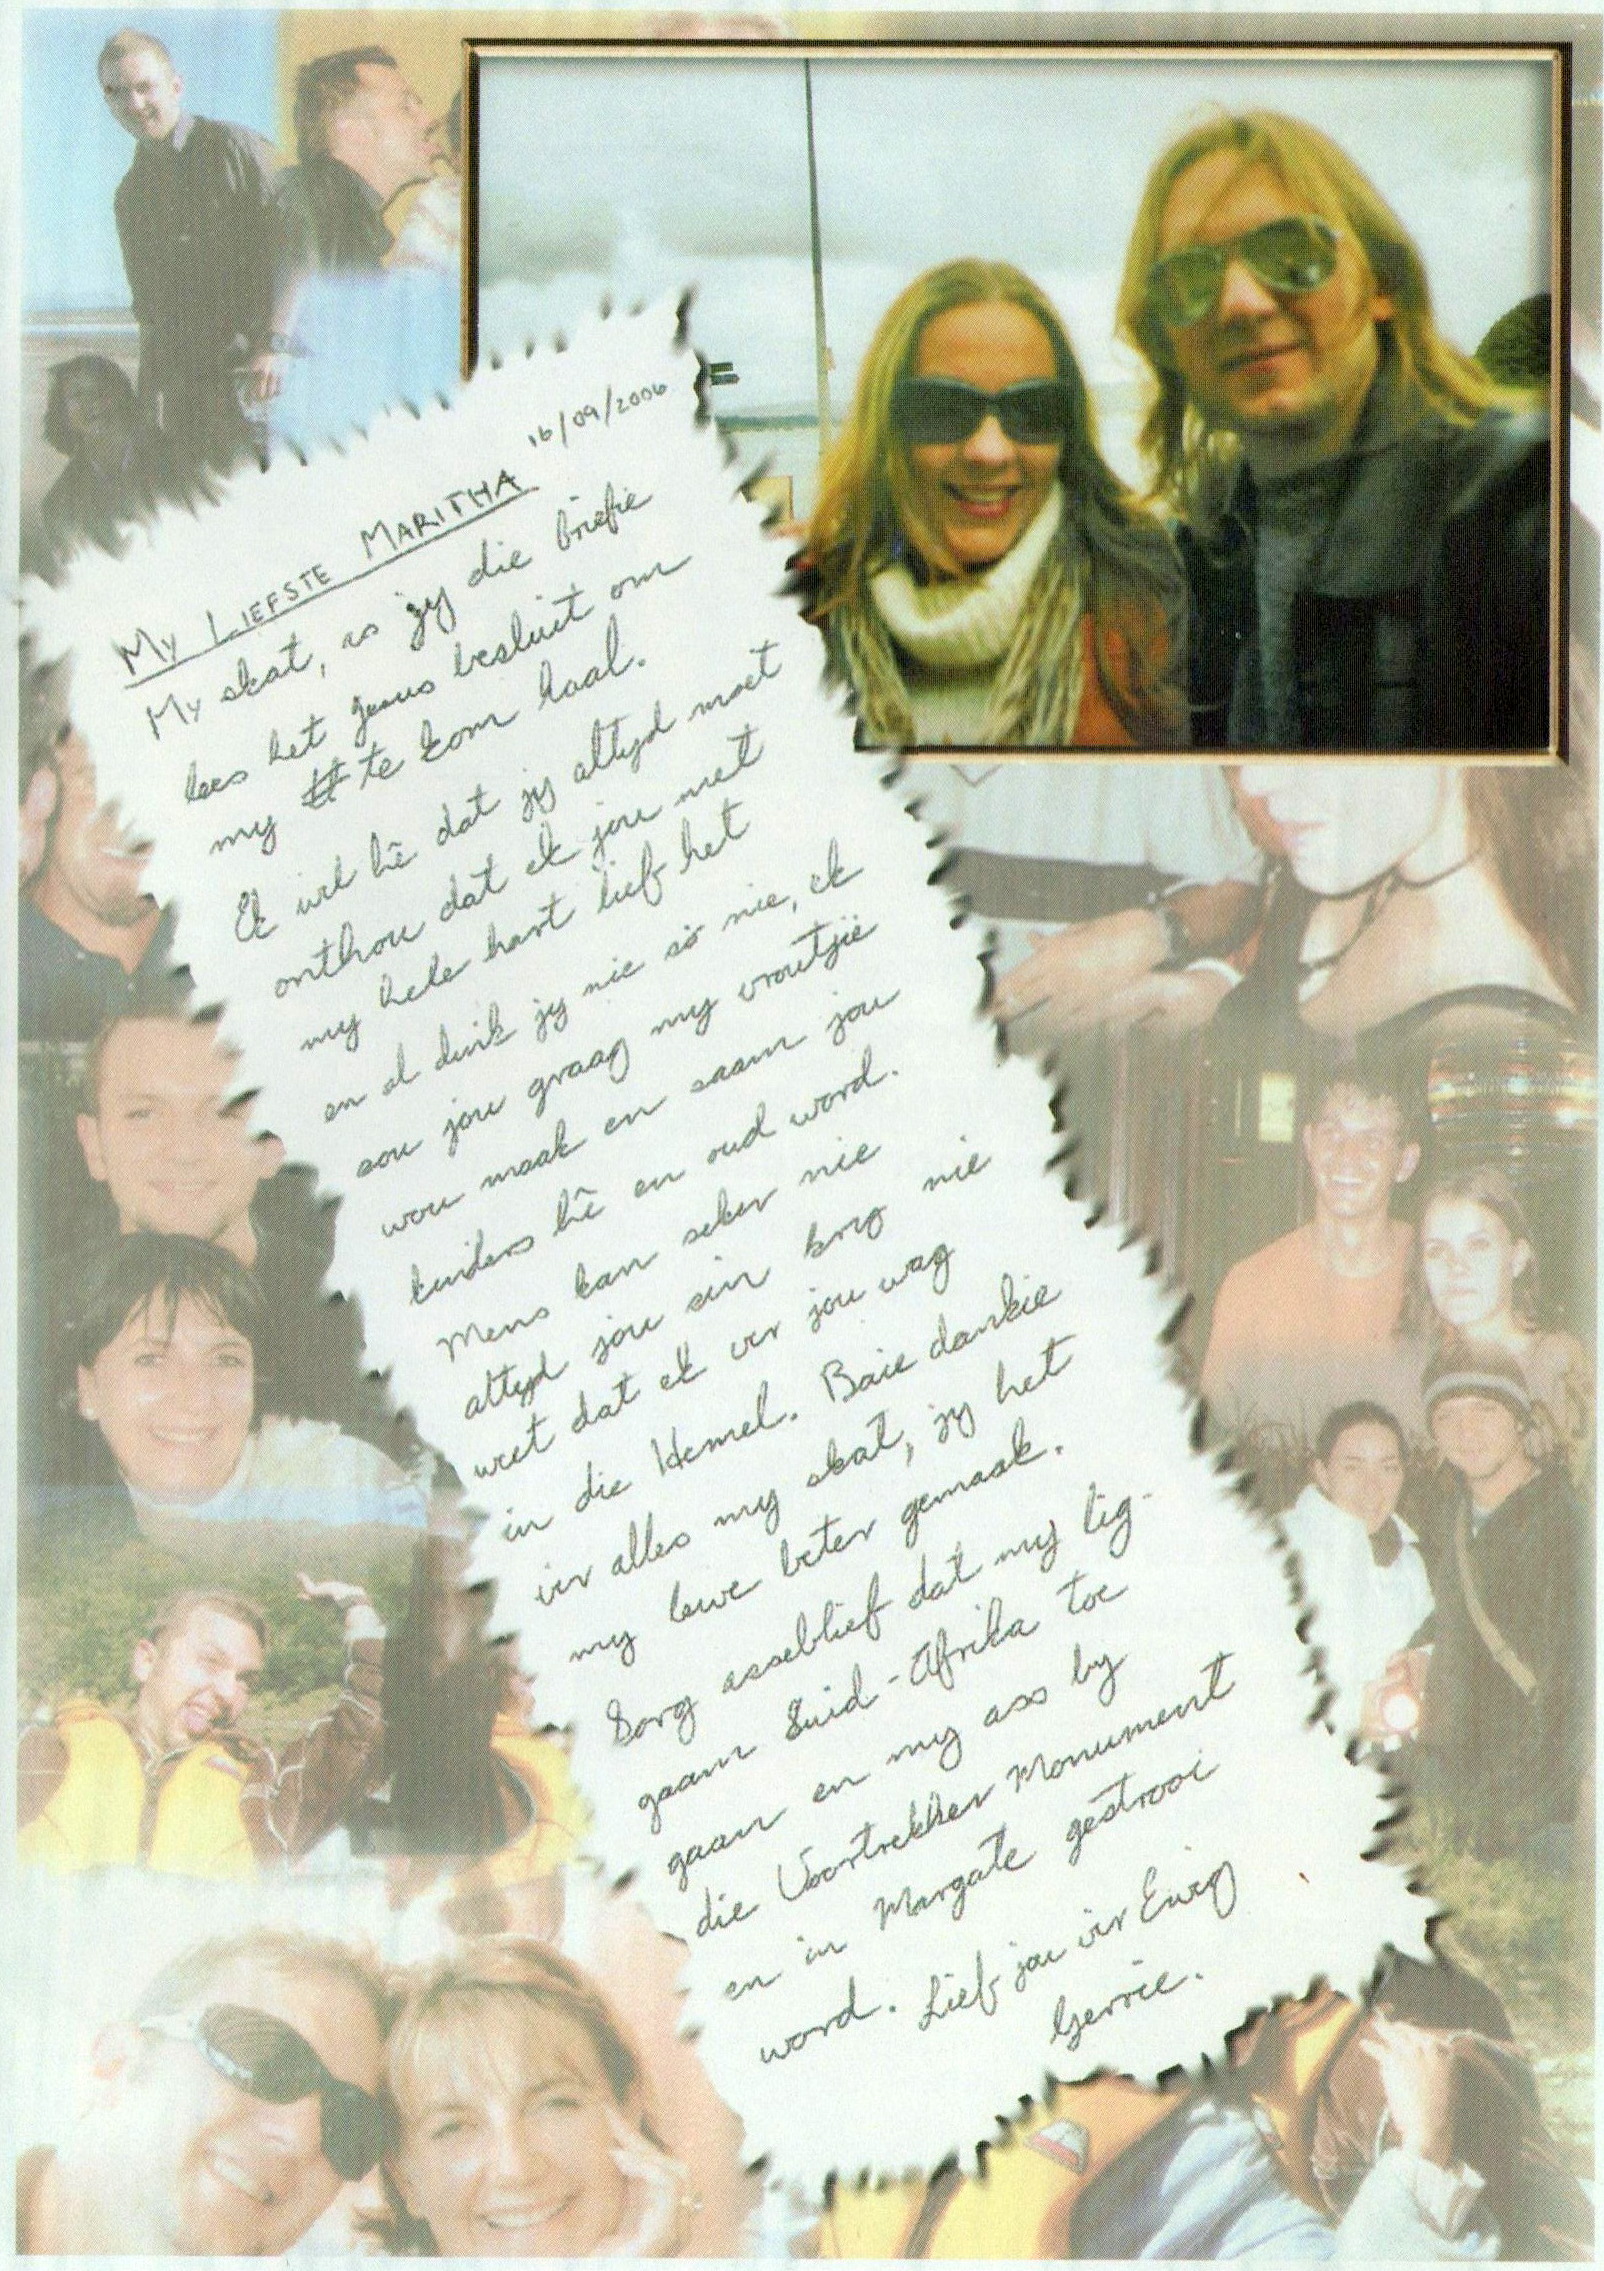 16/09/2006
MY LIEFSTE MARITHA
My skat, as jy die briefie
lees het Jesus besluit om
my te kom haal.
Ek wil hê dat jy altyd moet
onthou dat ek jou met
my hele hart lief het
en al dink jy nie so nie, ek
sou jou graag my vroutjie
wou maak en saam jou
kinders hê en oud word.
Mens kan seker nie
altyd jou sin kry nie
weet dat ek vir jou wag
in die Hemel. Baie dankie
vir alles my skat, jy het
my lewe beter gemaak.
Sorg asseblief dat my lig-
gaam Suid-Afrika toe
gaan en my ass by
die Voortrekker Monument
en in Margate gestrooi
word. Lief jou vir Ewig
Gerrie.